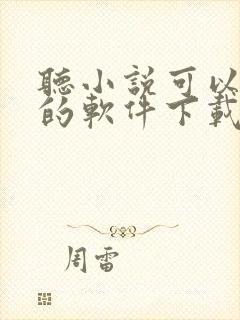 聽小説可以
的軟件下載
周雷